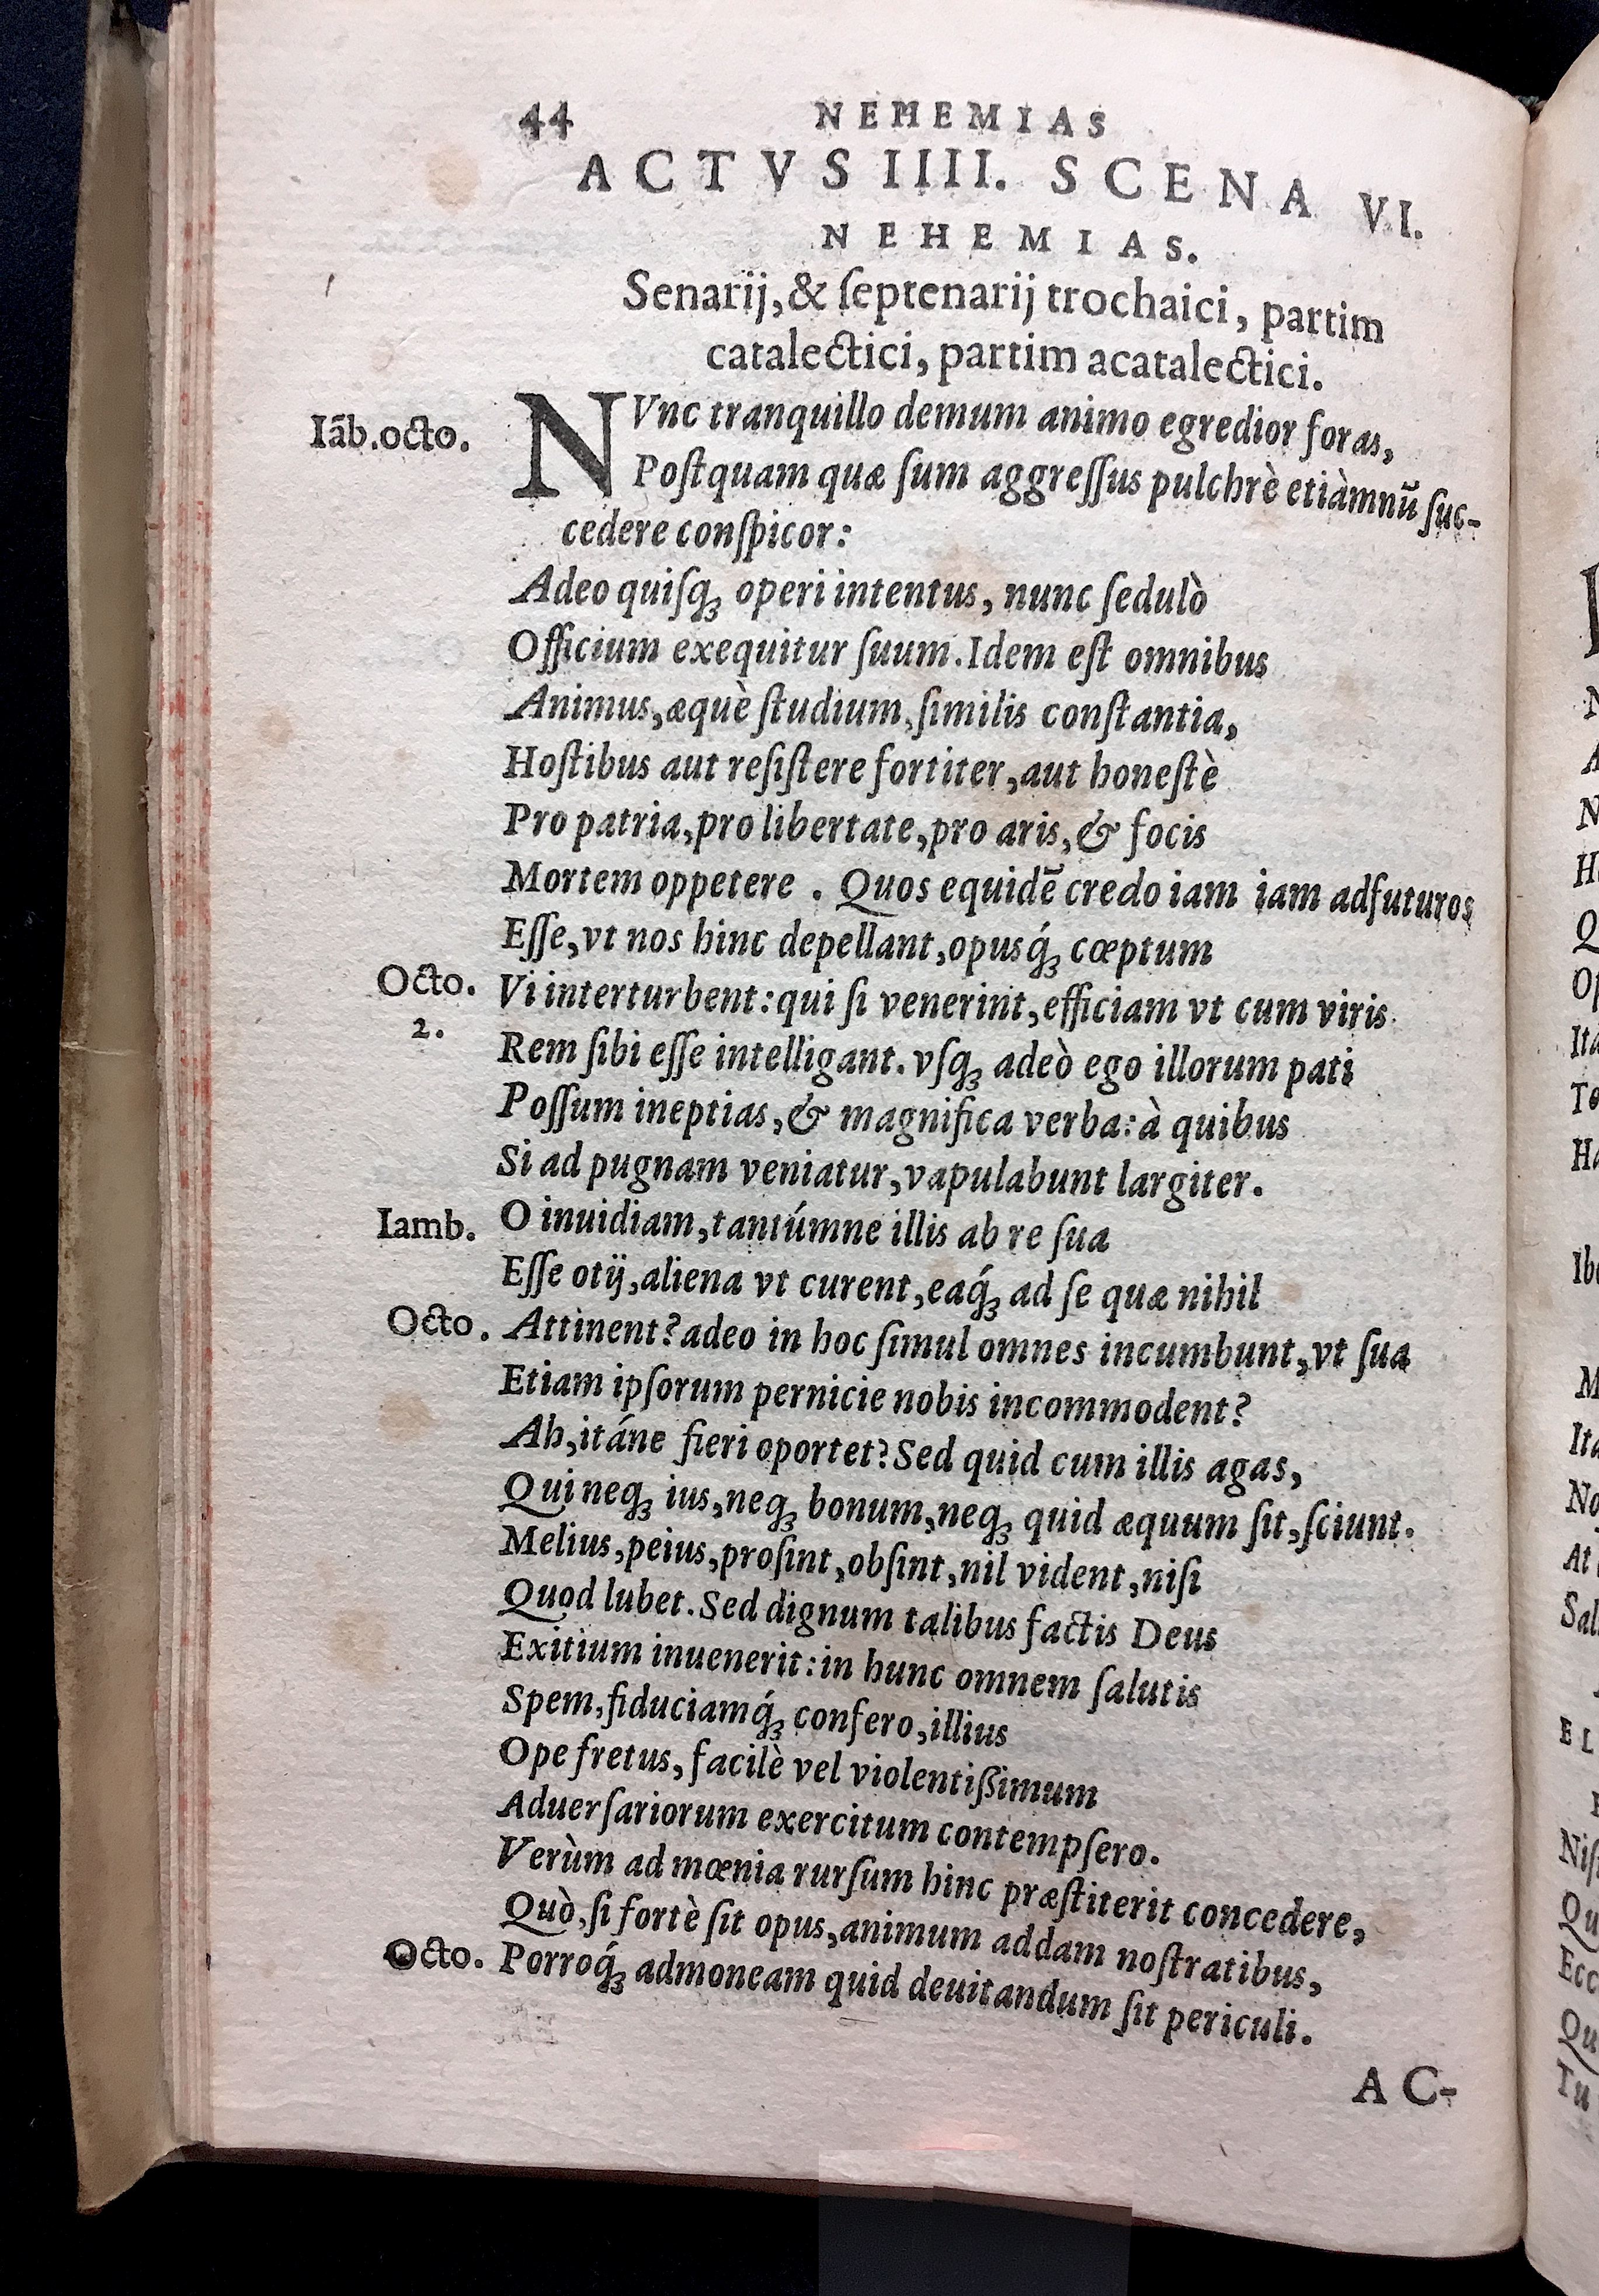 44 NEHEMIAS
ACTVS IIII. SCENA VI.
NEHEMIAS.
Senarij, & ſeptenarij trochaici, partim
catalectici, partim acatalectici.
Iãb.octo. NVnc tranquillo demum animo egredior foras,
Poſtquam quæ ſum aggreſſus pulchrè etiàmnũ ſuc-
cedere conſpicor:
Adeo quiſqꝫ operi intentus, nunc ſedulò
Officium exequitur ſuum. Idem eſt omnibus
Animus, æquè ſtudium, ſimilis conſtantia,
Hoſtibus aut reſiſtere fortiter, aut honeſtè
Pro patria, pro libertate, pro aris, & focis
Mortem oppetere . Quos equidẽ credo iam iam adfuturos
Eſſe, vt nos hinc depellant, opusq́ꝫ cœptum
Octo. Vi interturbent: qui ſi venerint, efficiam vt cum viris
2. Rem ſibi eſſe intelligant. vſqꝫ adeò ego illorum pati
Poſſum ineptias, & magnifica verba: à quibus
Si ad pugnam veniatur, vapulabunt largiter.
Iamb. O inuidiam, tantúmne illis ab re ſua
Eſſe otij, aliena vt curent, eaq́ꝫ ad ſe quæ nihil
Octo. Attinent? adeo in hoc ſimul omnes incumbunt, vt ſua
Etiam ipſorum pernicie nobis incommodent?
Ah, itáne fieri oportet? Sed quid cum illis agas,
Qui neqꝫ ius, neqꝫ bonum, neqꝫ quid æquum ſit, ſciunt.
Melius, peius, proſint, obſint, nil vident, niſi
Quod lubet. Sed dignum talibus factis Deus
Exitium inuenerit: in hunc omnem ſalutis
Spem, fiduciamq́ꝫ confero, illius
Ope fretus, facilè vel violentißimum
Aduerſariorum exercitum contempſero.
Verùm ad mœnia rurſum hinc præſtiterit concedere,
Quò, ſi fortè ſit opus, animum addam noſtratibus,
Octo. Porroq́ꝫ admoneam quid deuitandum ſit periculi.
AC-